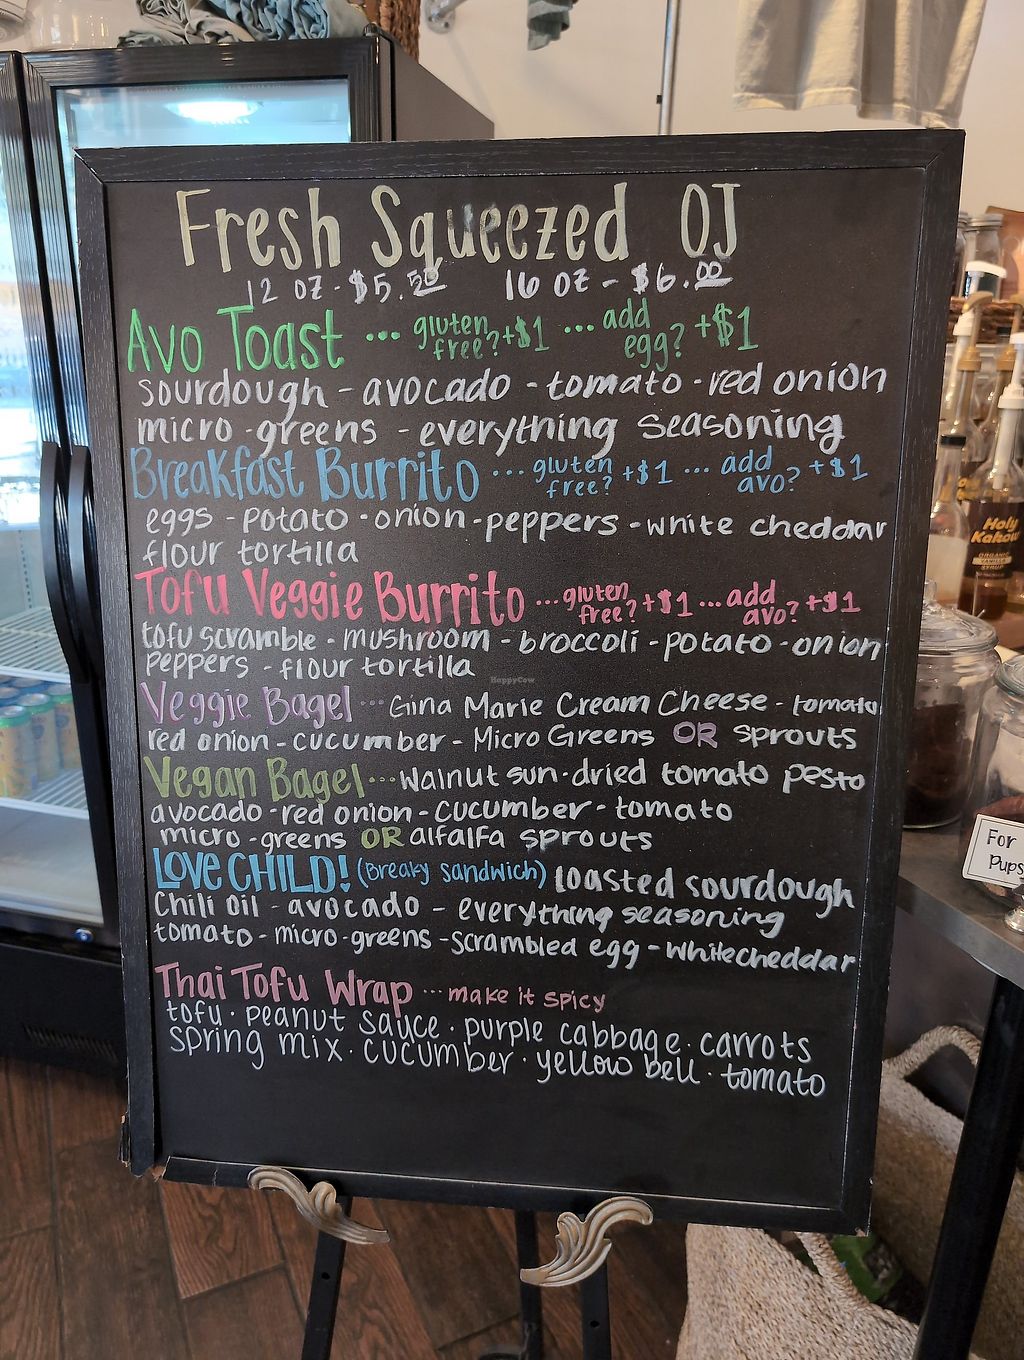 Fresh Squeezed OJ
12 oz - $5.50 16 oz - $6.00
Avo Toast ... gluten free? +$1 ... add egg? +$1
sourdough - avocado - tomato - red onion
micro-greens - everything seasoning
Breakfast Burrito ... gluten free? +$1 ... add avo? +$1
eggs - potato - onion - peppers - white cheddar
flour tortilla
Tofu Veggie Burrito ... gluten free? +$1 ... add avo? +$1
tofu scramble - mushroom - broccoli - potato - onion
peppers - flour tortilla
Veggie Bagel ... Gina Marie Cream Cheese - tomato
red onion - cucumber - Micro Greens OR sprouts
Vegan Bagel ... walnut sun-dried tomato pesto
avocado - red onion - cucumber - tomato
micro-greens OR alfalfa sprouts
LOVE CHILD! (Breaky sandwich) toasted sourdough
Chili oil - avocado - everything seasoning
tomato - micro-greens - scrambled egg - white cheddar
Thai Tofu Wrap ... make it spicy
tofu · peanut sauce · purple cabbage · carrots
spring mix · cucumber · yellow bell · tomato
HappyCow
Holy
Kakow
ORGANIC
VANILLA
SYRUP
For
Pups